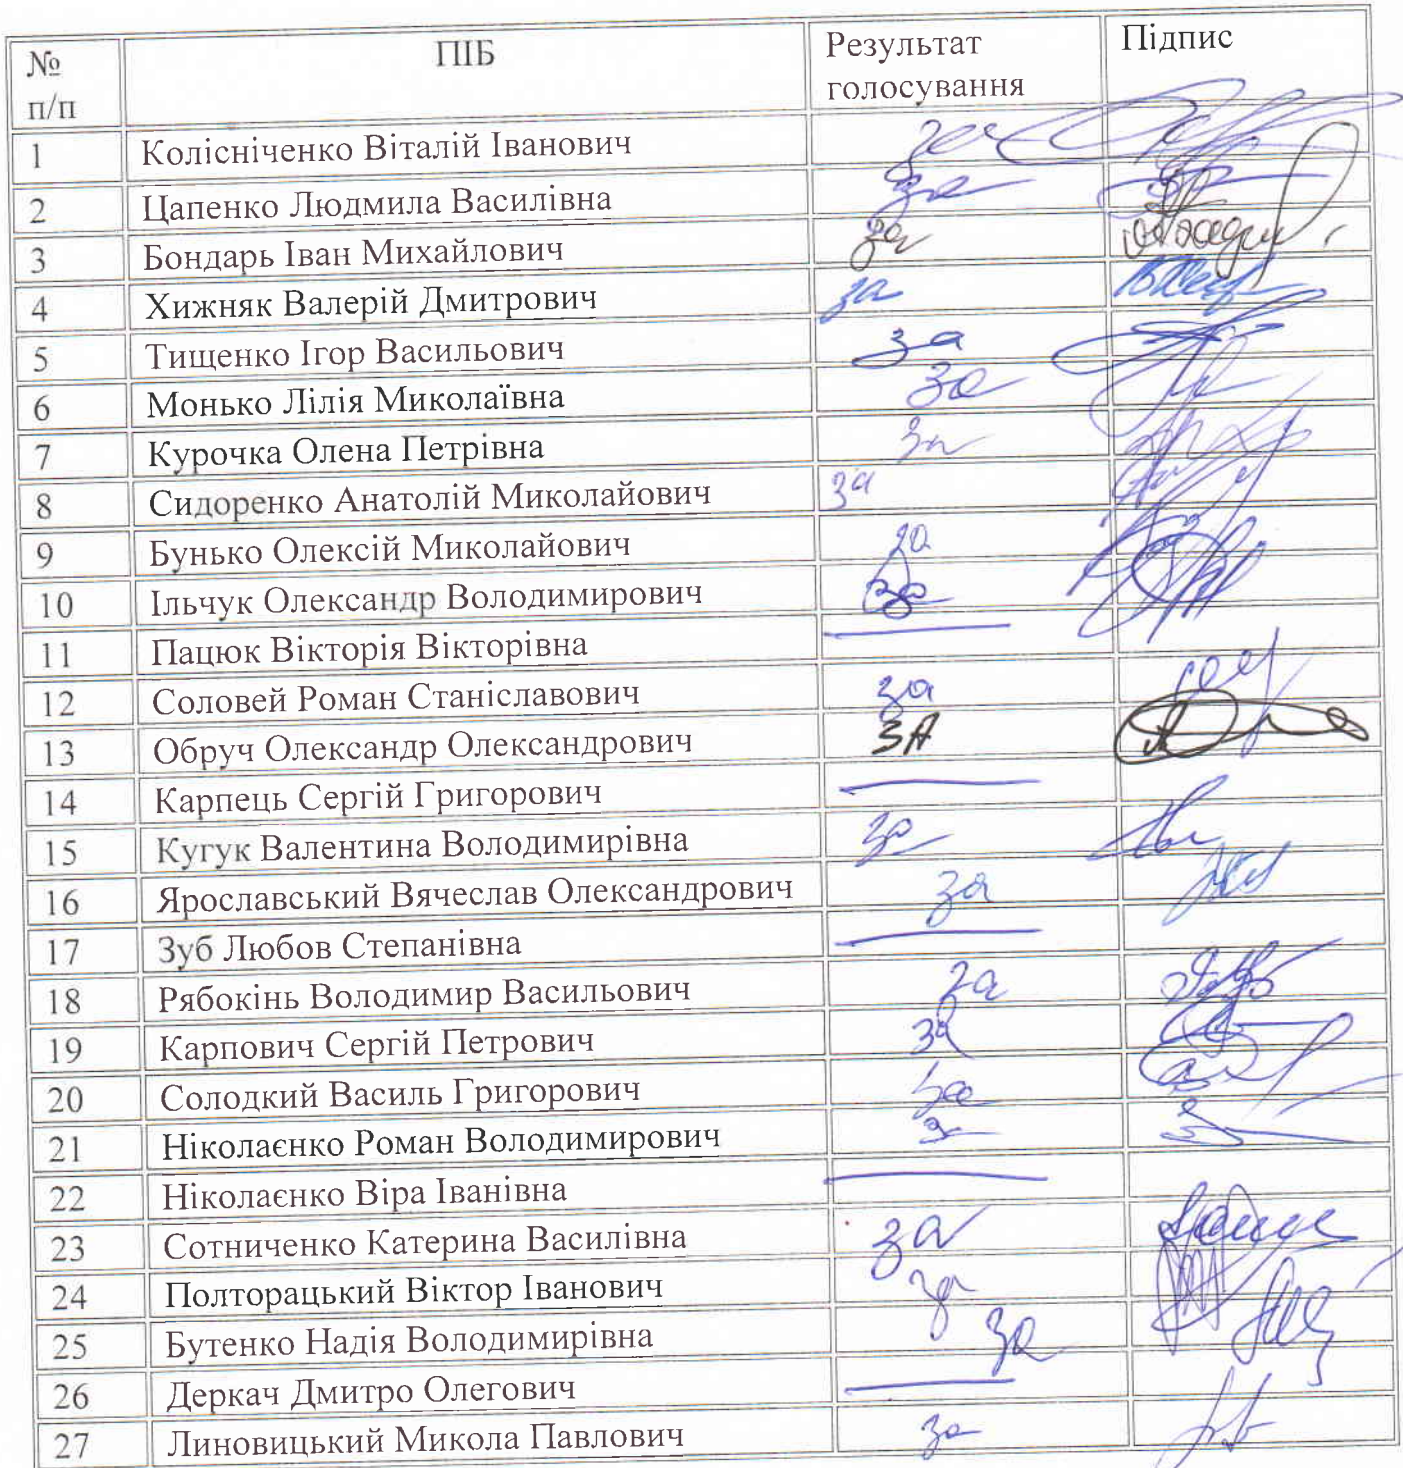 № п/п ПІБ Результат голосування Підпис
1 Колісніченко Віталій Іванович за
2 Цапенко Людмила Василівна за
3 Бондарь Іван Михайлович за
4 Хижняк Валерій Дмитрович за
5 Тищенко Ігор Васильович за
6 Монько Лілія Миколаївна за
7 Курочка Олена Петрівна за
8 Сидоренко Анатолій Миколайович за
9 Бунько Олексій Миколайович за
10 Ільчук Олександр Володимирович за
11 Пацюк Вікторія Вікторівна
12 Соловей Роман Станіславович за
13 Обруч Олександр Олександрович ЗА
14 Карпець Сергій Григорович
15 Кугук Валентина Володимирівна за
16 Ярославський Вячеслав Олександрович за
17 Зуб Любов Степанівна
18 Рябокінь Володимир Васильович за
19 Карпович Сергій Петрович за
20 Солодкий Василь Григорович за
21 Ніколаєнко Роман Володимирович за
22 Ніколаєнко Віра Іванівна
23 Сотниченко Катерина Василівна за
24 Полторацький Віктор Іванович за
25 Бутенко Надія Володимирівна за
26 Деркач Дмитро Олегович
27 Линовицький Микола Павлович за